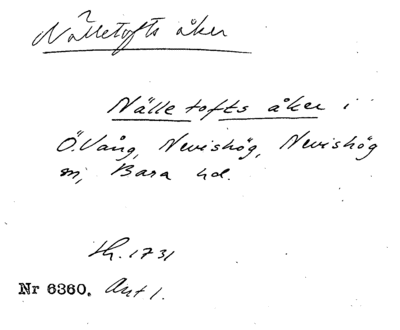 Nälletofts åker
Nälle tofts åker i
Ö. Vång, Nevishög, Nevishög
sn, Bara hd.
Lh. 1731
Nr 6360. Ant 1.